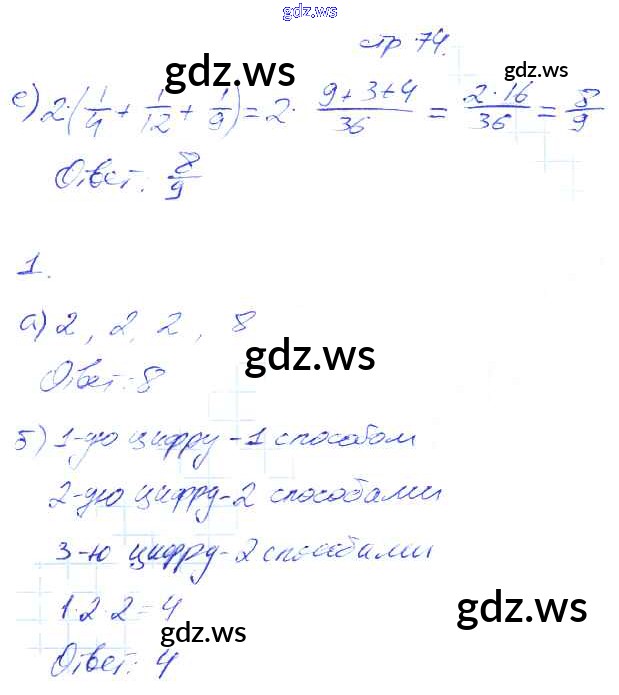 gdz.ws
стр 74.
gdz.ws
gdz.ws
е) 2·(1/4 + 1/12 + 1/9) = 2· (9+3+4)/36 = (2·16)/36 = 8/9
Ответ: 8/9
1.
а) 2, 2, 2, 8
gdz.ws
Ответ: 8
б) 1-ую цифру - 1 способом
2-ую цифру - 2 способами
3-ю цифру - 2 способами
1·2·2=4
gdz.ws
gdz.ws
Ответ: 4